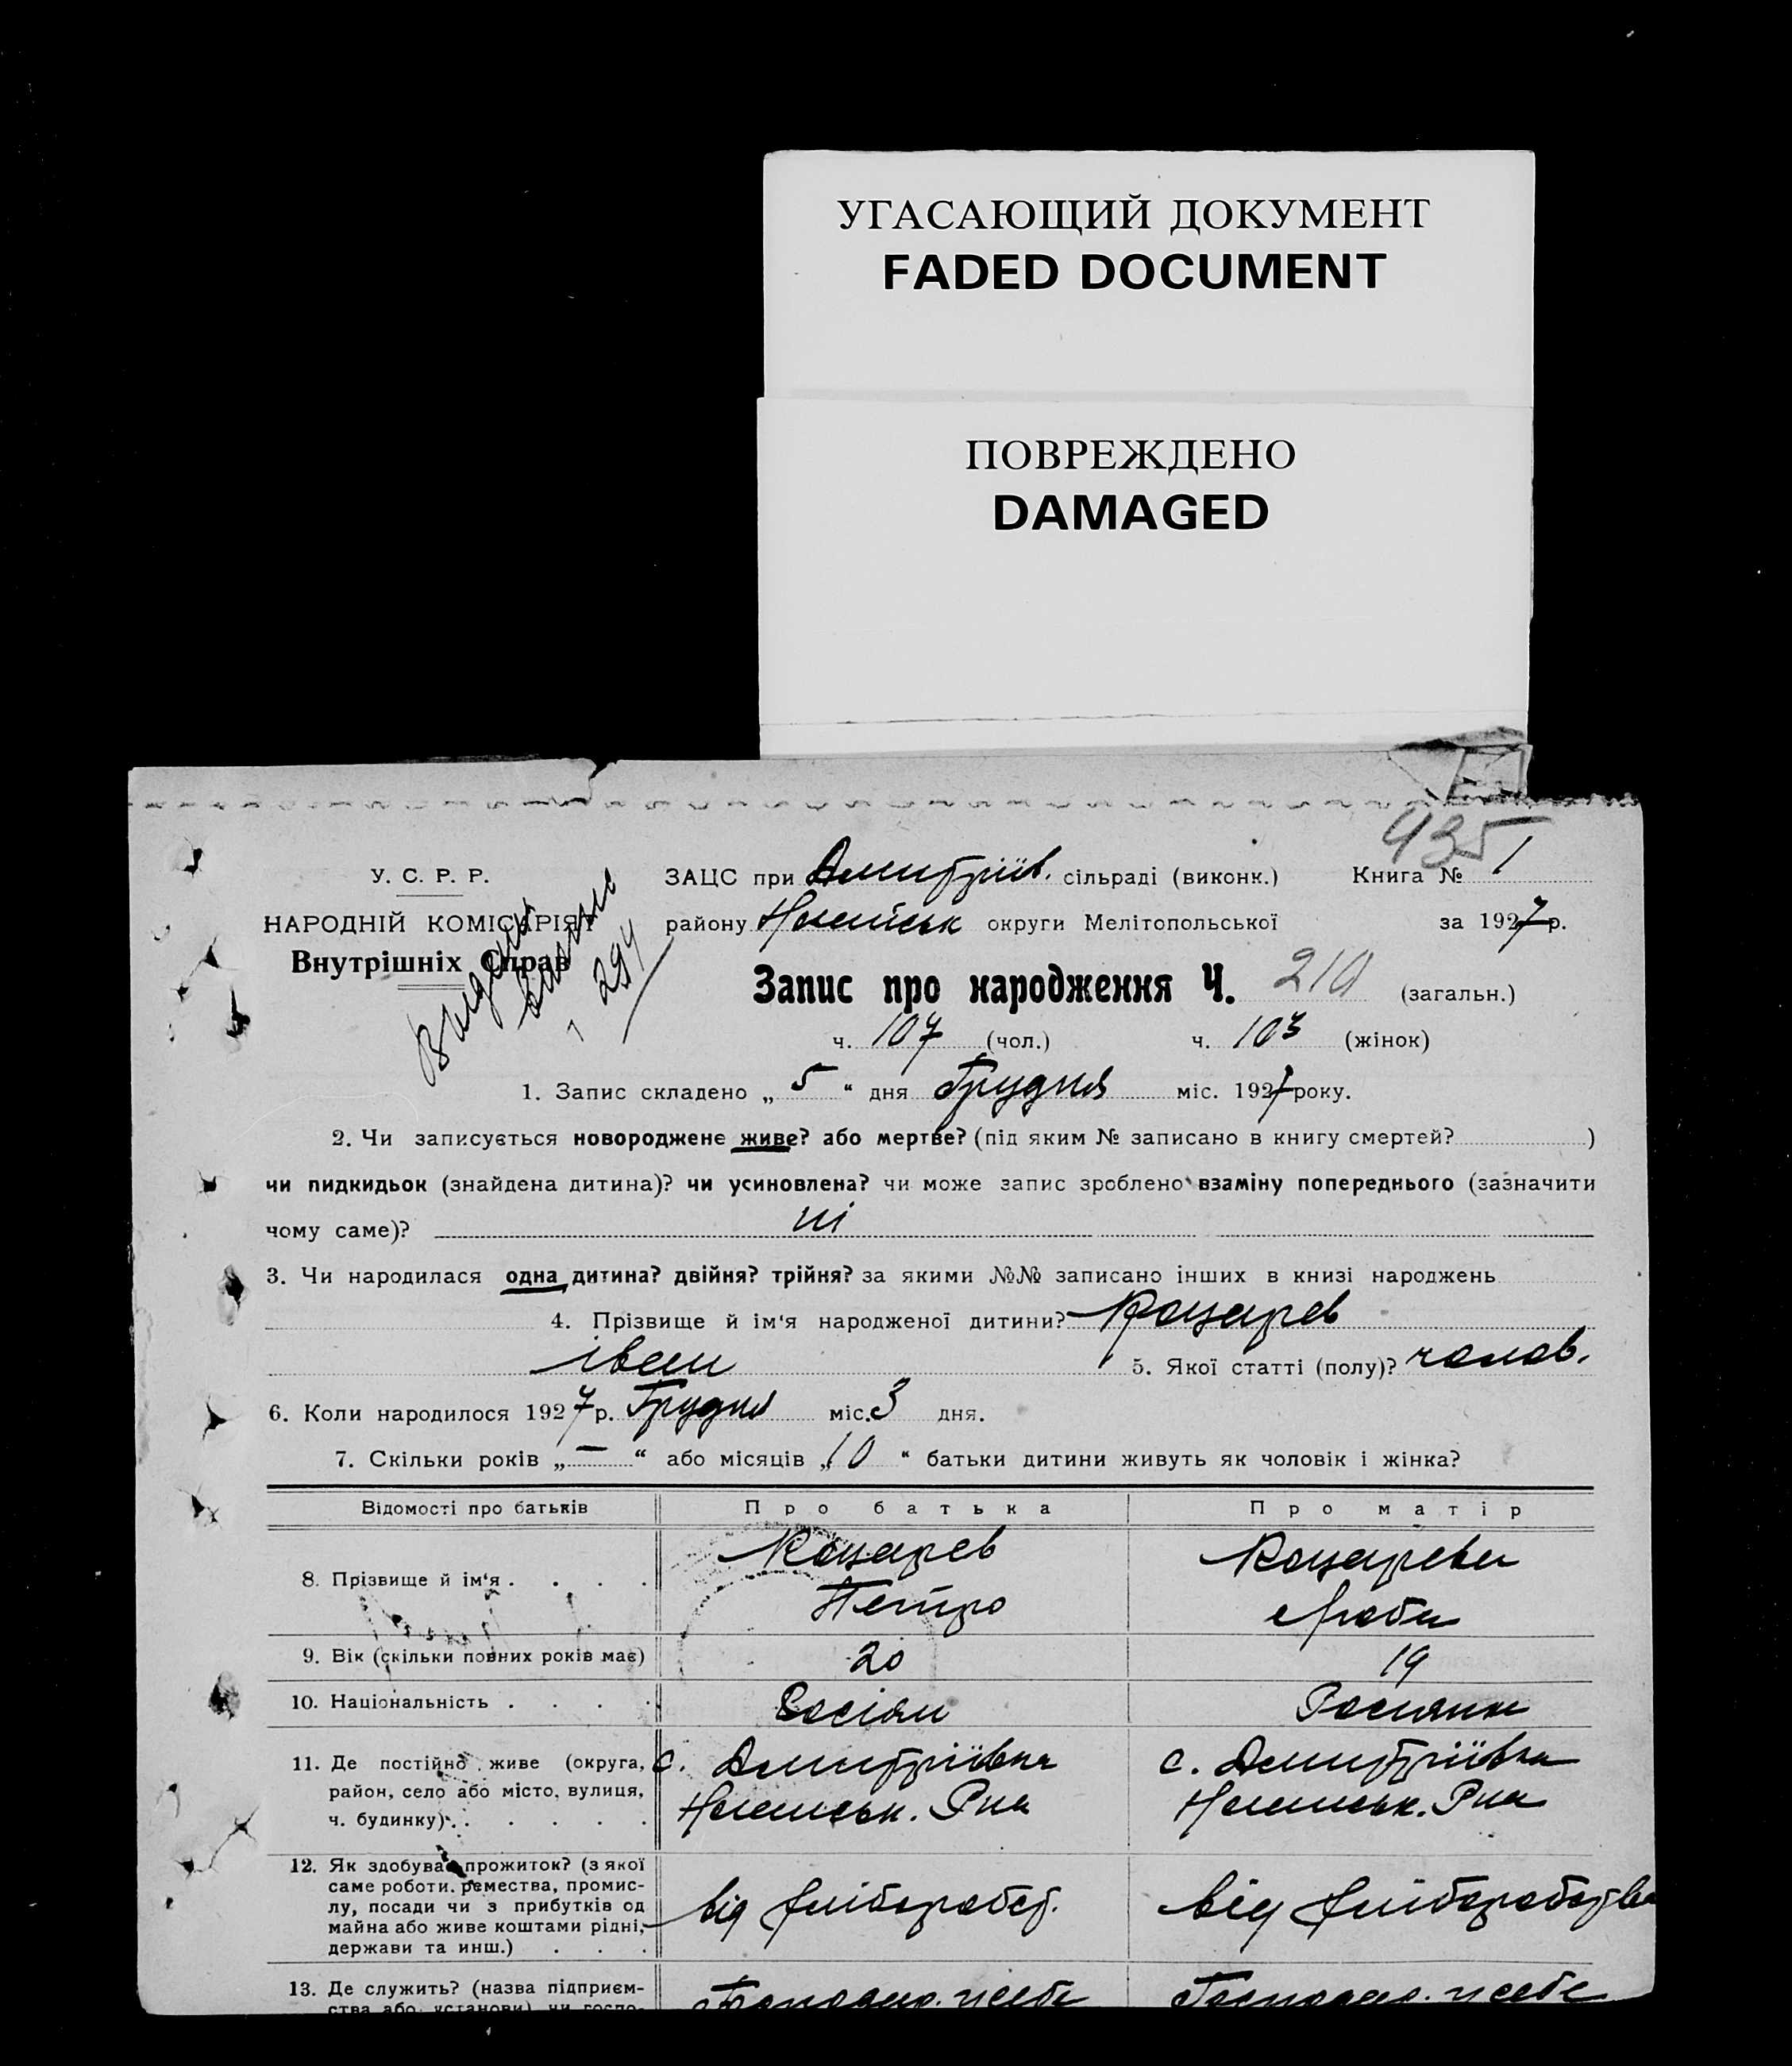 УГАСАЮЩИЙ ДОКУМЕНТ
FADED DOCUMENT
ПОВРЕЖДЕНО
DAMAGED
435
У. С. Р. Р.
ЗАЦС при Дмитріїв. сільраді (виконк.) Книга № 1
НАРОДНІЙ КОМІСАРІЯТ
району округи Мелітопольської за 1927 р.
Внутрішніх Справ
Видана
294
Запис про народження Ч. 210 (загальн.)
ч. 107 (чол.) ч. 103 (жінок)
1. Запис складено „ 5 “ дня Грудня міс. 1927 року.
2. Чи записується новороджене живе? або мертве? (під яким № записано в книгу смертей? )
чи пидкидьок (знайдена дитина)? чи усиновлена? чи може запис зроблено взаміну попереднього (зазначити
чому саме)? ні
3. Чи народилася одна дитина? двійня? трійня? за якими №№ записано інших в книзі народжень
4. Прізвище й ім‘я народженої дитини? Коцарев
іван 5. Якої статті (полу)? чолов.
6. Коли народилося 1927 р. Грудня міс. 3 дня.
7. Скільки років „ — “ або місяців „ 10 “ батьки дитини живуть як чоловік і жінка?
Відомості про батьків Про батька Про матір
Коцарев Коцарева
8. Прізвище й ім‘я . . . .
Петро
9. Вік (скільки повних років має) 20 19
10. Національність . . . . Росіян Росіянка
11. Де постійно живе (округа, с. Дмитріївка с. Дмитріївка
район, село або місто, вулиця,
ч. будинку) . . . . . Рна Рна
12. Як здобуває прожиток? (з якої
саме роботи, ремества, промис-
лу, посади чи з прибутків од
майна або живе коштами рідні, від хліборобст. від хліборобства
держави та инш.) . . .
13. Де служить? (назва підприєм-
ства або установи) чи госпо-